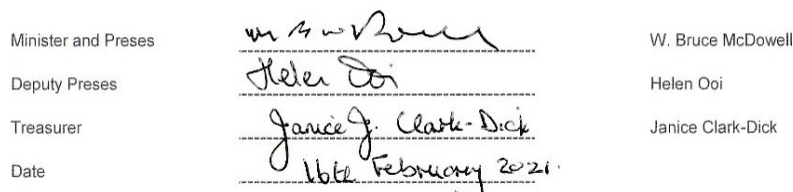 Minister and Preses W. Bruce McDowell
Deputy Preses Helen Ooi Helen Ooi
Treasurer Janice J. Clark-Dick Janice Clark-Dick
Date 16th February 2021.